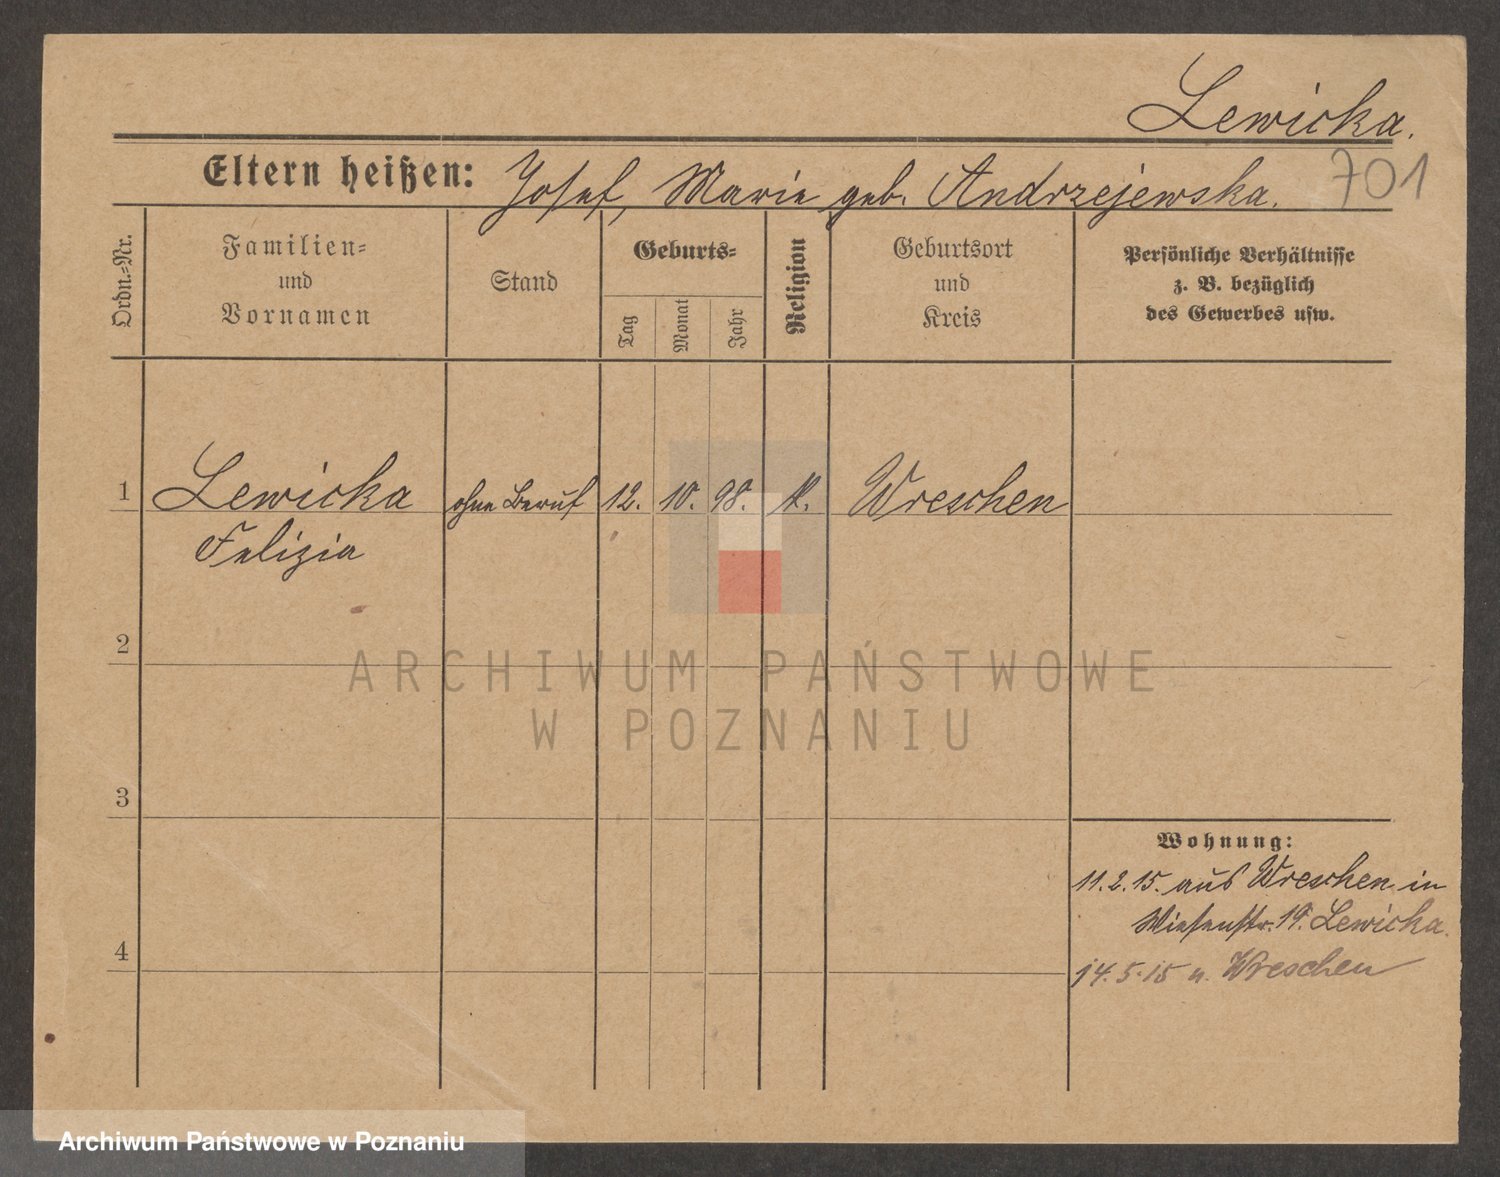 Lewicka.
701
Eltern heißen: Josef, Marie geb. Andrzejewska.
Ordn.-Nr.
Familien-
und
Vornamen
Stand
Geburts-
Tag
Monat
Jahr
Religion
Geburtsort
und
Kreis
Persönliche Verhältnisse
z. B. bezüglich
des Gewerbes usw.
1 Lewicka ohne Beruf 12. 10. 98. k. Wreschen
Felizia
2
ARCHIWUM PAŃSTWOWE
W POZNANIU
3
Wohnung:
11.2.15. aus Wreschen in
Wiesenstr. 19. Lewicka.
4
14.5.15 n. Wreschen
Archiwum Państwowe w Poznaniu